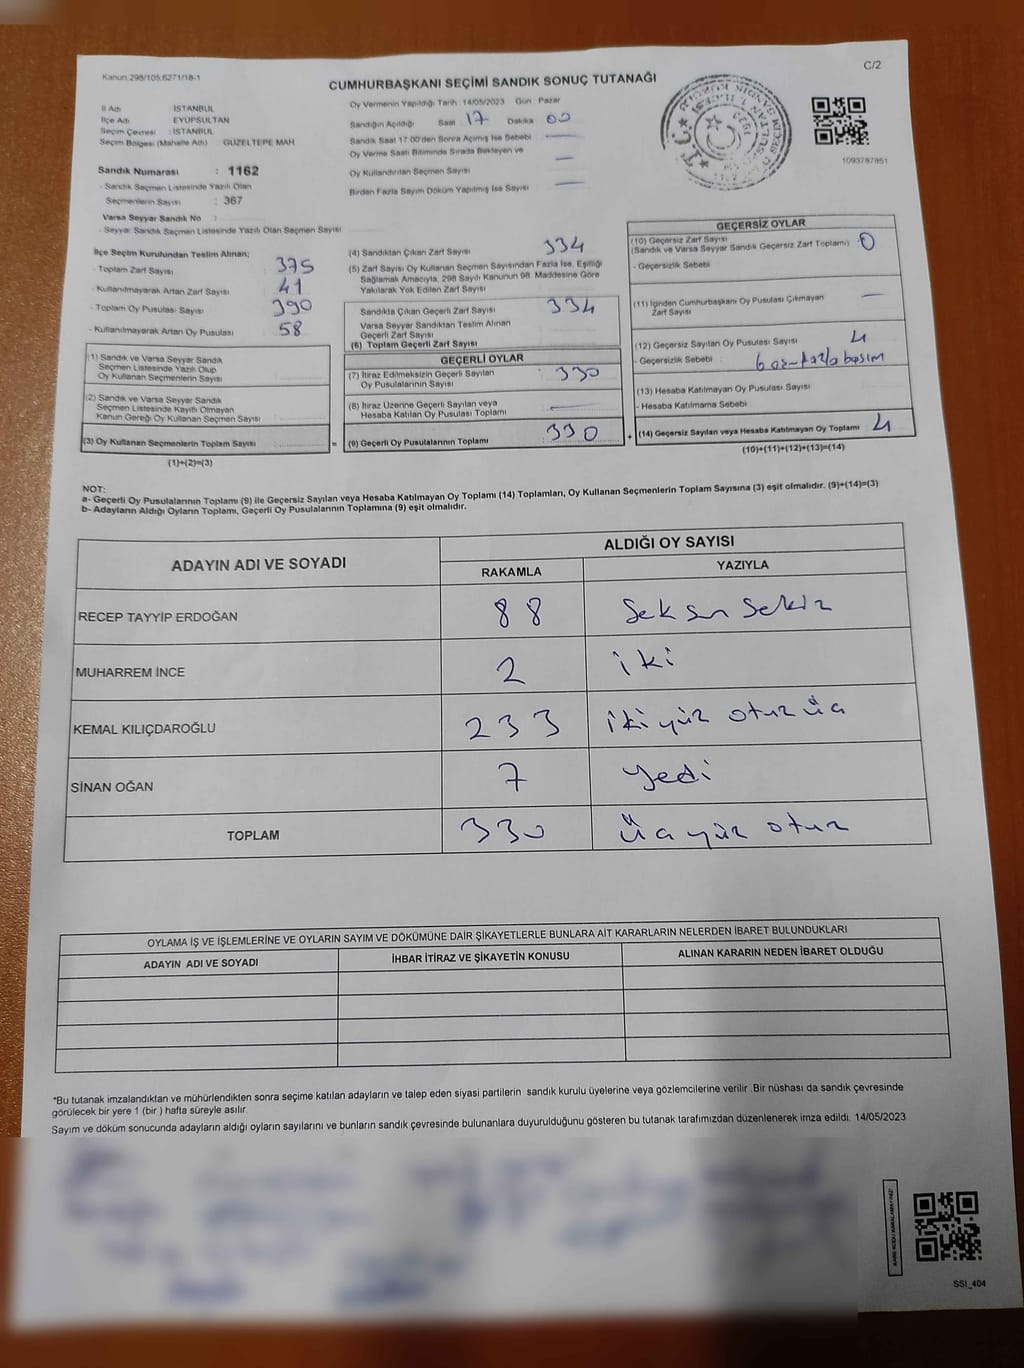 Kanun:298/105,6271/18-1
C/2
CUMHURBAŞKANI SEÇİMİ SANDIK SONUÇ TUTANAĞI
İl Adı : İSTANBUL
İlçe Adı : EYÜPSULTAN
Seçim Çevresi : İSTANBUL
Seçim Bölgesi (Mahalle Adı) GÜZELTEPE MAH
Sandık Numarası : 1162
- Sandık Seçmen Listesinde Yazılı Olan
Seçmenlerin Sayısı : 367
Varsa Seyyar Sandık No :
- Seyyar Sandık Seçmen Listesinde Yazılı Olan Seçmen Sayısı
Oy Vermenin Yapıldığı Tarih : 14/05/2023 Gün : Pazar
Sandığın Açıldığı Saat 17 Dakika 00
Sandık Saat 17:00'den Sonra Açılmış İse Sebebi —
Oy Verme Saati Bitiminde Sırada Bekleyen ve
Oy Kullandırılan Seçmen Sayısı —
Birden Fazla Sayım Döküm Yapılmış İse Sayısı —
1093787851
İlçe Seçim Kurulundan Teslim Alınan;
- Toplam Zarf Sayısı 375
- Kullanılmayarak Artan Zarf Sayısı 41
- Toplam Oy Pusulası Sayısı 390
- Kullanılmayarak Artan Oy Pusulası 58
(1) Sandık ve Varsa Seyyar Sandık
Seçmen Listesinde Yazılı Olup
Oy Kullanan Seçmenlerin Sayısı
(2) Sandık ve Varsa Seyyar Sandık
Seçmen Listesinde Kayıtlı Olmayan
Kanun Gereği Oy Kullanan Seçmen Sayısı
(3) Oy Kullanan Seçmenlerin Toplam Sayısı =
(1)+(2)=(3)
(4) Sandıktan Çıkan Zarf Sayısı 334
(5) Zarf Sayısı Oy Kullanan Seçmen Sayısından Fazla İse, Eşitliği
Sağlamak Amacıyla, 298 Sayılı Kanunun 98. Maddesine Göre
Yakılarak Yok Edilen Zarf Sayısı
Sandıkta Çıkan Geçerli Zarf Sayısı 334
Varsa Seyyar Sandıktan Teslim Alınan
Geçerli Zarf Sayısı
(6) Toplam Geçerli Zarf Sayısı
GEÇERLİ OYLAR
(7) İtiraz Edilmeksizin Geçerli Sayılan
Oy Pusulalarının Sayısı 330
(8) İtiraz Üzerine Geçerli Sayılan veya
Hesaba Katılan Oy Pusulası Toplamı —
(9) Geçerli Oy Pusulalarının Toplamı 330 +
GEÇERSİZ OYLAR
(10) Geçersiz Zarf Sayısı
(Sandık ve Varsa Seyyar Sandık Geçersiz Zarf Toplamı) 0
- Geçersizlik Sebebi
(11) İçinden Cumhurbaşkanı Oy Pusulası Çıkmayan
Zarf Sayısı —
(12) Geçersiz Sayılan Oy Pusulası Sayısı 4
- Geçersizlik Sebebi
(13) Hesaba Katılmayan Oy Pusulası Sayısı
- Hesaba Katılmama Sebebi
(14) Geçersiz Sayılan veya Hesaba Katılmayan Oy Toplamı 4
(10)+(11)+(12)+(13)=(14)
NOT:
a- Geçerli Oy Pusulalarının Toplamı (9) ile Geçersiz Sayılan veya Hesaba Katılmayan Oy Toplamı (14) Toplamları, Oy Kullanan Seçmenlerin Toplam Sayısına (3) eşit olmalıdır. (9)+(14)=(3)
b- Adayların Aldığı Oyların Toplamı, Geçerli Oy Pusulalarının Toplamına (9) eşit olmalıdır.
ADAYIN ADI VE SOYADI ALDIĞI OY SAYISI
RAKAMLA YAZIYLA
RECEP TAYYİP ERDOĞAN 88 Seksen Sekiz
MUHARREM İNCE 2 iki
KEMAL KILIÇDAROĞLU 233 ikiyüz otuz üç
SİNAN OĞAN 7 yedi
TOPLAM 330 üç yüz otuz
OYLAMA İŞ VE İŞLEMLERİNE VE OYLARIN SAYIM VE DÖKÜMÜNE DAİR ŞİKAYETLERLE BUNLARA AİT KARARLARIN NELERDEN İBARET BULUNDUKLARI
ADAYIN ADI VE SOYADI İHBAR İTİRAZ VE ŞİKAYETİN KONUSU ALINAN KARARIN NEDEN İBARET OLDUĞU
*Bu tutanak imzalandıktan ve mühürlendikten sonra seçime katılan adayların ve talep eden siyasi partilerin sandık kurulu üyelerine veya gözlemcilerine verilir .Bir nüshası da sandık çevresinde
görülecek bir yere 1 (bir ) hafta süreyle asılır.
Sayım ve döküm sonucunda adayların aldığı oyların sayılarını ve bunların sandık çevresinde bulunanlara duyurulduğunu gösteren bu tutanak tarafımızdan düzenlenerek imza edildi. 14/05/2023
SSI_404